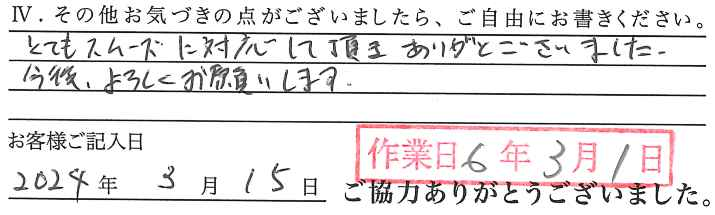 Ⅳ．その他お気づきの点がございましたら、ご自由にお書きください。
とてもスムーズに対応して頂き ありがとございました。
今後、よろしくお願いします。
お客様ご記入日
作業日6年3月1日
2024年 3月15日
ご協力ありがとうございました。